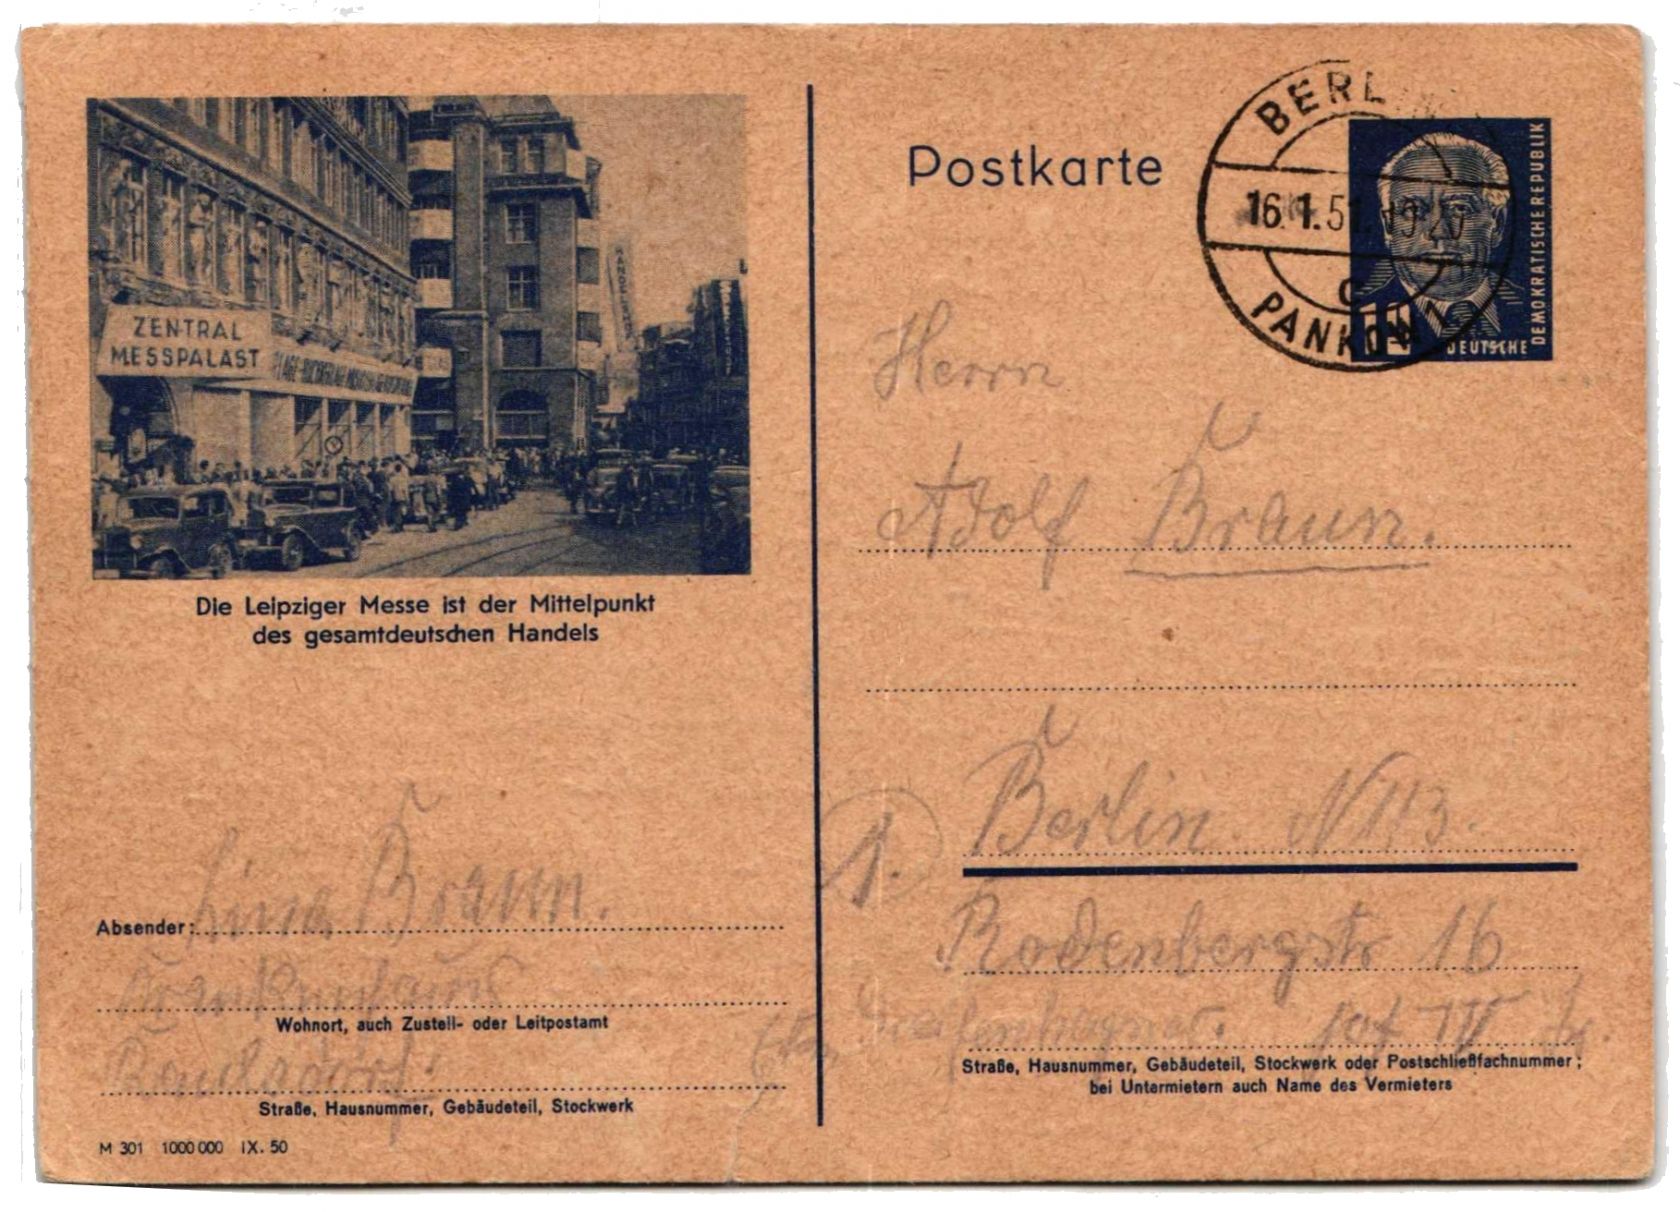 ZENTRAL
MESSPALAST
Die Leipziger Messe ist der Mittelpunkt
des gesamtdeutschen Handels
Absender: Lina Braun.
Wohnort, auch Zustell- oder Leitpostamt
Straße, Hausnummer, Gebäudeteil, Stockwerk
M 301 1000000 IX. 50
Postkarte
BERL
16.1.51
PANKOW 1
DEUTSCHE
DEMOKRATISCHE REPUBLIK
Herrn
Adolf Braun.
Berlin N 113.
Rodenbergstr 16
Straße, Hausnummer, Gebäudeteil, Stockwerk oder Postschließfachnummer;
bei Untermietern auch Name des Vermieters